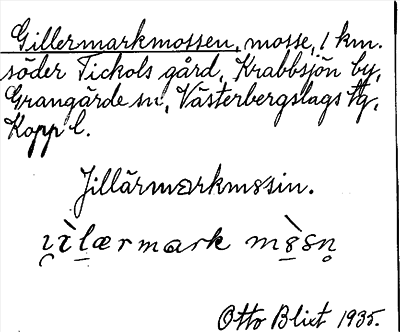 Gillermarkmossen, mosse, 1 km.
söder Tickols gård, Krabbsjön by,
Grangärde sn, Västerbergslags tg,
Kopp l.
Jillärmarkmosin.
Otto Blixt 1935.